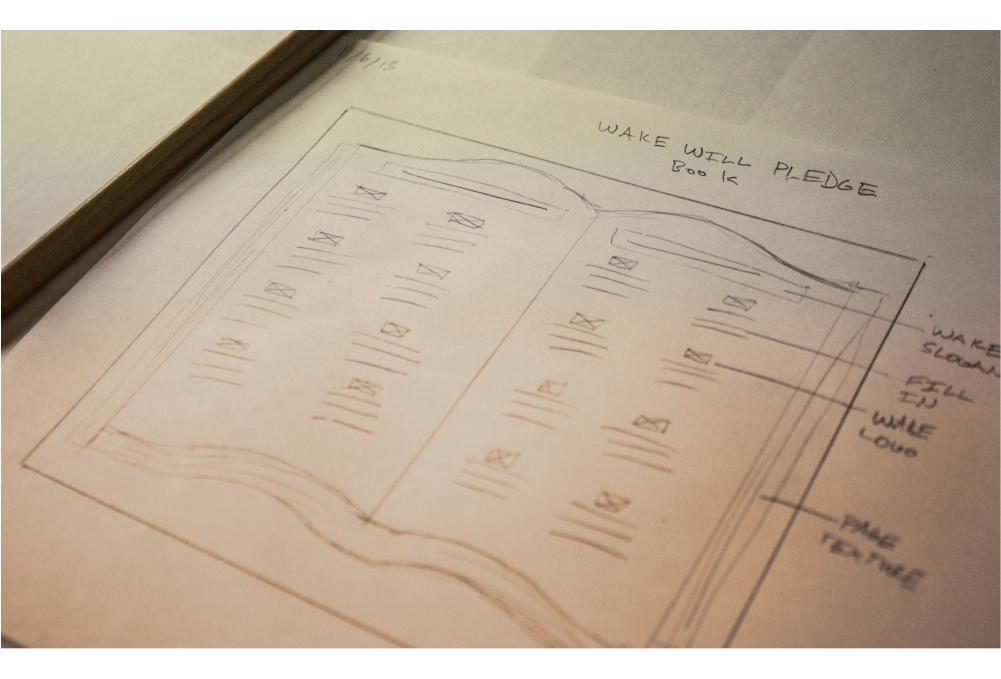 WAKE WILL PLEDGE
BOOK
WAKE
SLOGAN
FILL
IN
WAKE
LOGO
PAGE
TEXTURE